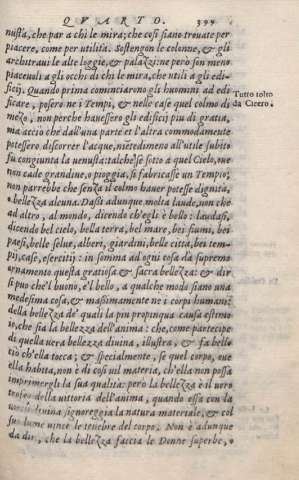 QVARTO. 399
nustà, che par a chi le mira; che cosi siano trouate per
piacere, come per vtilità. Sostengon le colonne, & gli
architraui le alte loggie, & palazzi: ne però son meno
piaceuoli a gli occhi di chi le mira, che vtili a gli edi-
ficij. Quando prima cominciarono gli huomini ad edi-
Tutto tolto
da Cicero.
ficare, posero ne i Tempi, & nelle case quel colmo di
mezo, non perche hauessero gli edificij piu di gratia,
ma acciò che dall'una parte et l'altra commodamente
potessero discorrer l'acque, nientedimeno all'vtile subito
fu congiunta la uenustà: talche se sotto a quel Cielo, oue
non cade grandine, o pioggia, si fabricasse un Tempio;
non parrebbe che senza il colmo hauer potesse dignità,
o bellezza alcuna. Dassi adunque molta laude, non che
ad altro, al mondo, dicendo ch'egli è bello: laudasi,
dicendo bel cielo, bella terra, bel mare, bei fiumi, bei
paesi, belle selue, alberi, giardini, belle città, bei tem-
pij, case, eserciti: in somma ad ogni cosa dà supremo
ornamento questa gratiosa & sacra bellezza: & dir
si puo che'l buono, e'l bello, a qualche modo siano una
medesima cosa, & massimamente ne i corpi humani:
della bellezza de' quali la piu propinqua causa estimo
io, che sia la bellezza dell'anima: che, come partecipe
di quella vera bellezza diuina, illustro, & fa bello
ciò ch'ella tocca; & specialmente, se quel corpo, oue
ella habita, non è di così uil materia, ch'ella non possa
imprimergli la sua qualità: però la bellezza è il vero
trofeo della vittoria dell'anima, quando essa con la
diuina signoreggia la natura materiale, & col
suo lume vince le tenebre del corpo. Non è adunque
da dir, che la bellezza faccia le Donne superbe, o